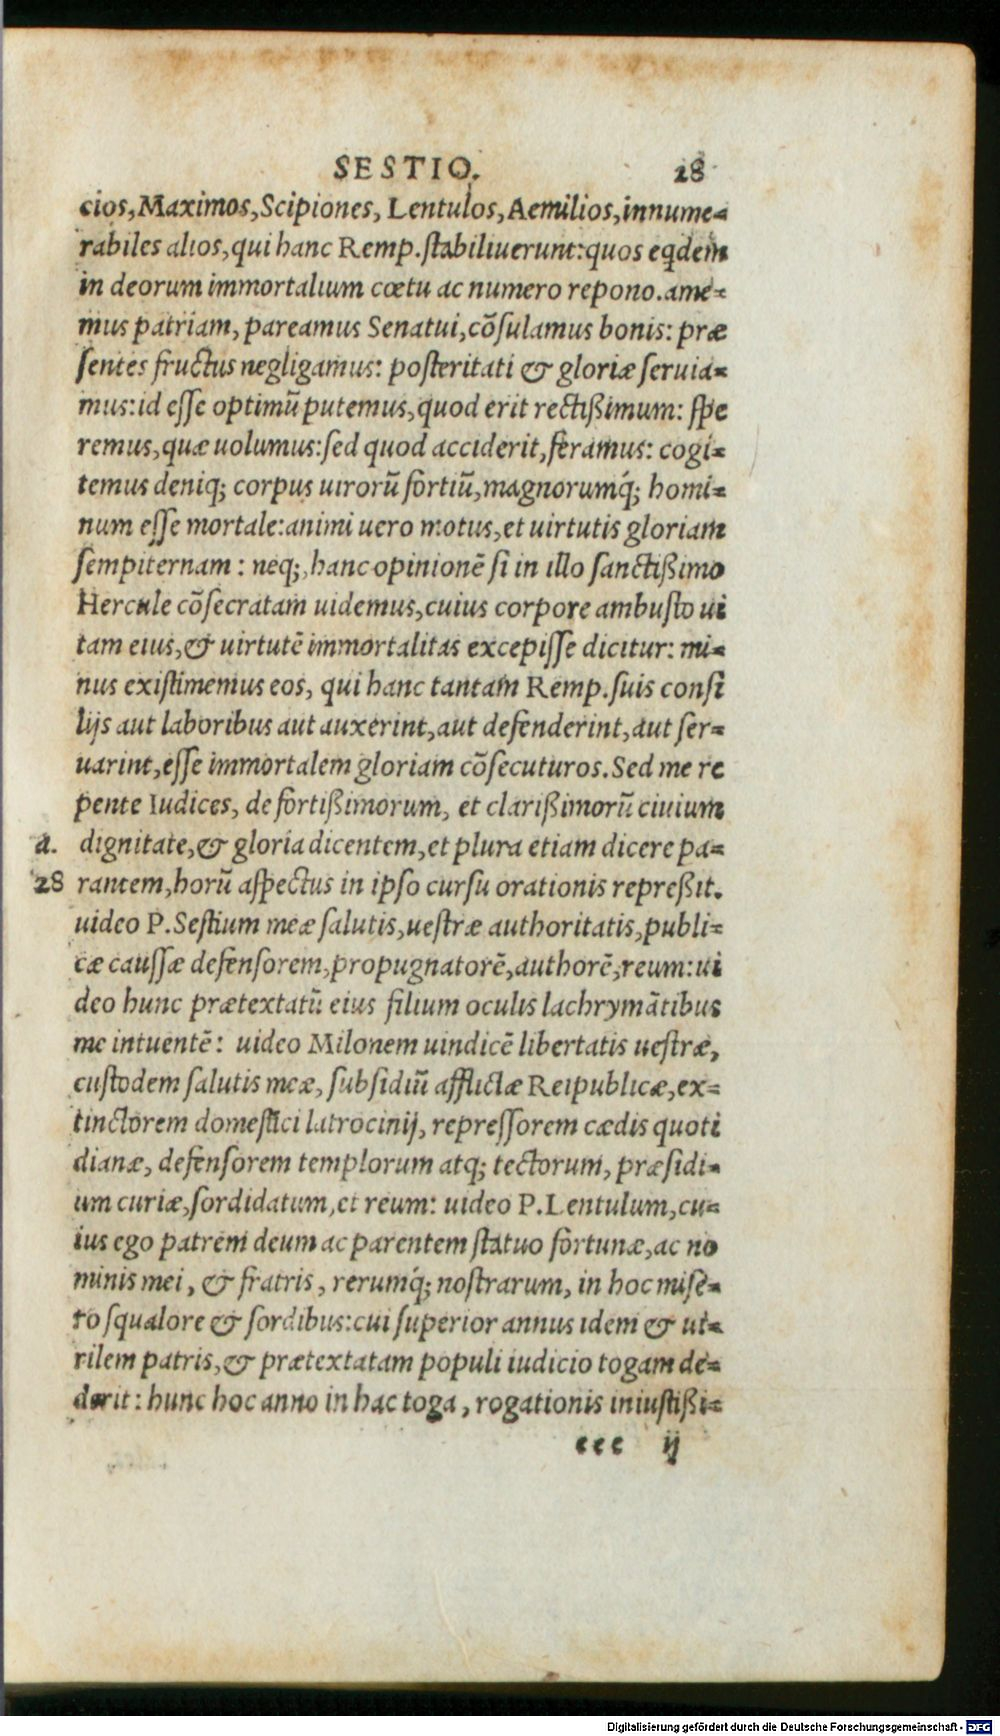 SESTIO. 28
cios, Maximos, Scipiones, Lentulos, Aemilios, innume-
rabiles alios, qui hanc Remp. stabiliuerunt: quos eqdem
in deorum immortalium cœtu ac numero repono. ame-
mus patriam, pareamus Senatui, cõsulamus bonis: præ
sentes fructus negligamus: posteritati & gloriæ seruia-
mus: id esse optimũ putemus, quod erit rectißimum: spe
remus, quæ uolumus: sed quod acciderit, feramus: cogi-
temus deniq; corpus uirorũ fortiũ, magnorumq́; homi-
num esse mortale: animi uero motus, et uirtutis gloriam
sempiternam: neq;, hanc opinionẽ si in illo sanctißimo
Hercule cõsecratam uidemus, cuius corpore ambusto ui
tam eius, & uirtutẽ immortalitas excepisse dicitur: mi-
nus existimemus eos, qui hanc tantam Remp. suis consi
lijs aut laboribus aut auxerint, aut defenderint, aut ser-
uarint, esse immortalem gloriam cõsecuturos. Sed me re
pente Iudices, de fortißimorum, et clarißimorũ ciuium
a. dignitate, & gloria dicentem, et plura etiam dicere pa-
28 rantem, horũ aspectus in ipso cursu orationis repreßit.
uideo P. Sestium meæ salutis, uestræ authoritatis, publi-
cæ caussæ defensorem, propugnatorẽ, authorẽ, reum: ui
deo hunc prætextatũ eius filium oculis lachrymãtibus
me intuentẽ: uideo Milonem uindicẽ libertatis uestræ,
custodem salutis meæ, subsidiũ afflictæ Reipublicæ, ex-
tinctorem domestici latrocinij, repressorem cædis quoti
dianæ, defensorem templorum atq; tectorum, præsidi-
um curiæ, sordidatum, et reum: uideo P. Lentulum, cu-
ius ego patrem deum ac parentem statuo fortunæ, ac no
minis mei, & fratris, rerumq́; nostrarum, in hoc mise-
ro squalore & sordibus: cui superior annus idem & ui-
rilem patris, & prætextatam populi iudicio togam de-
derit: hunc hoc anno in hac toga, rogationis iniustißi-
eee ij
Digitalisierung gefördert durch die Deutsche Forschungsgemeinschaft - DFG